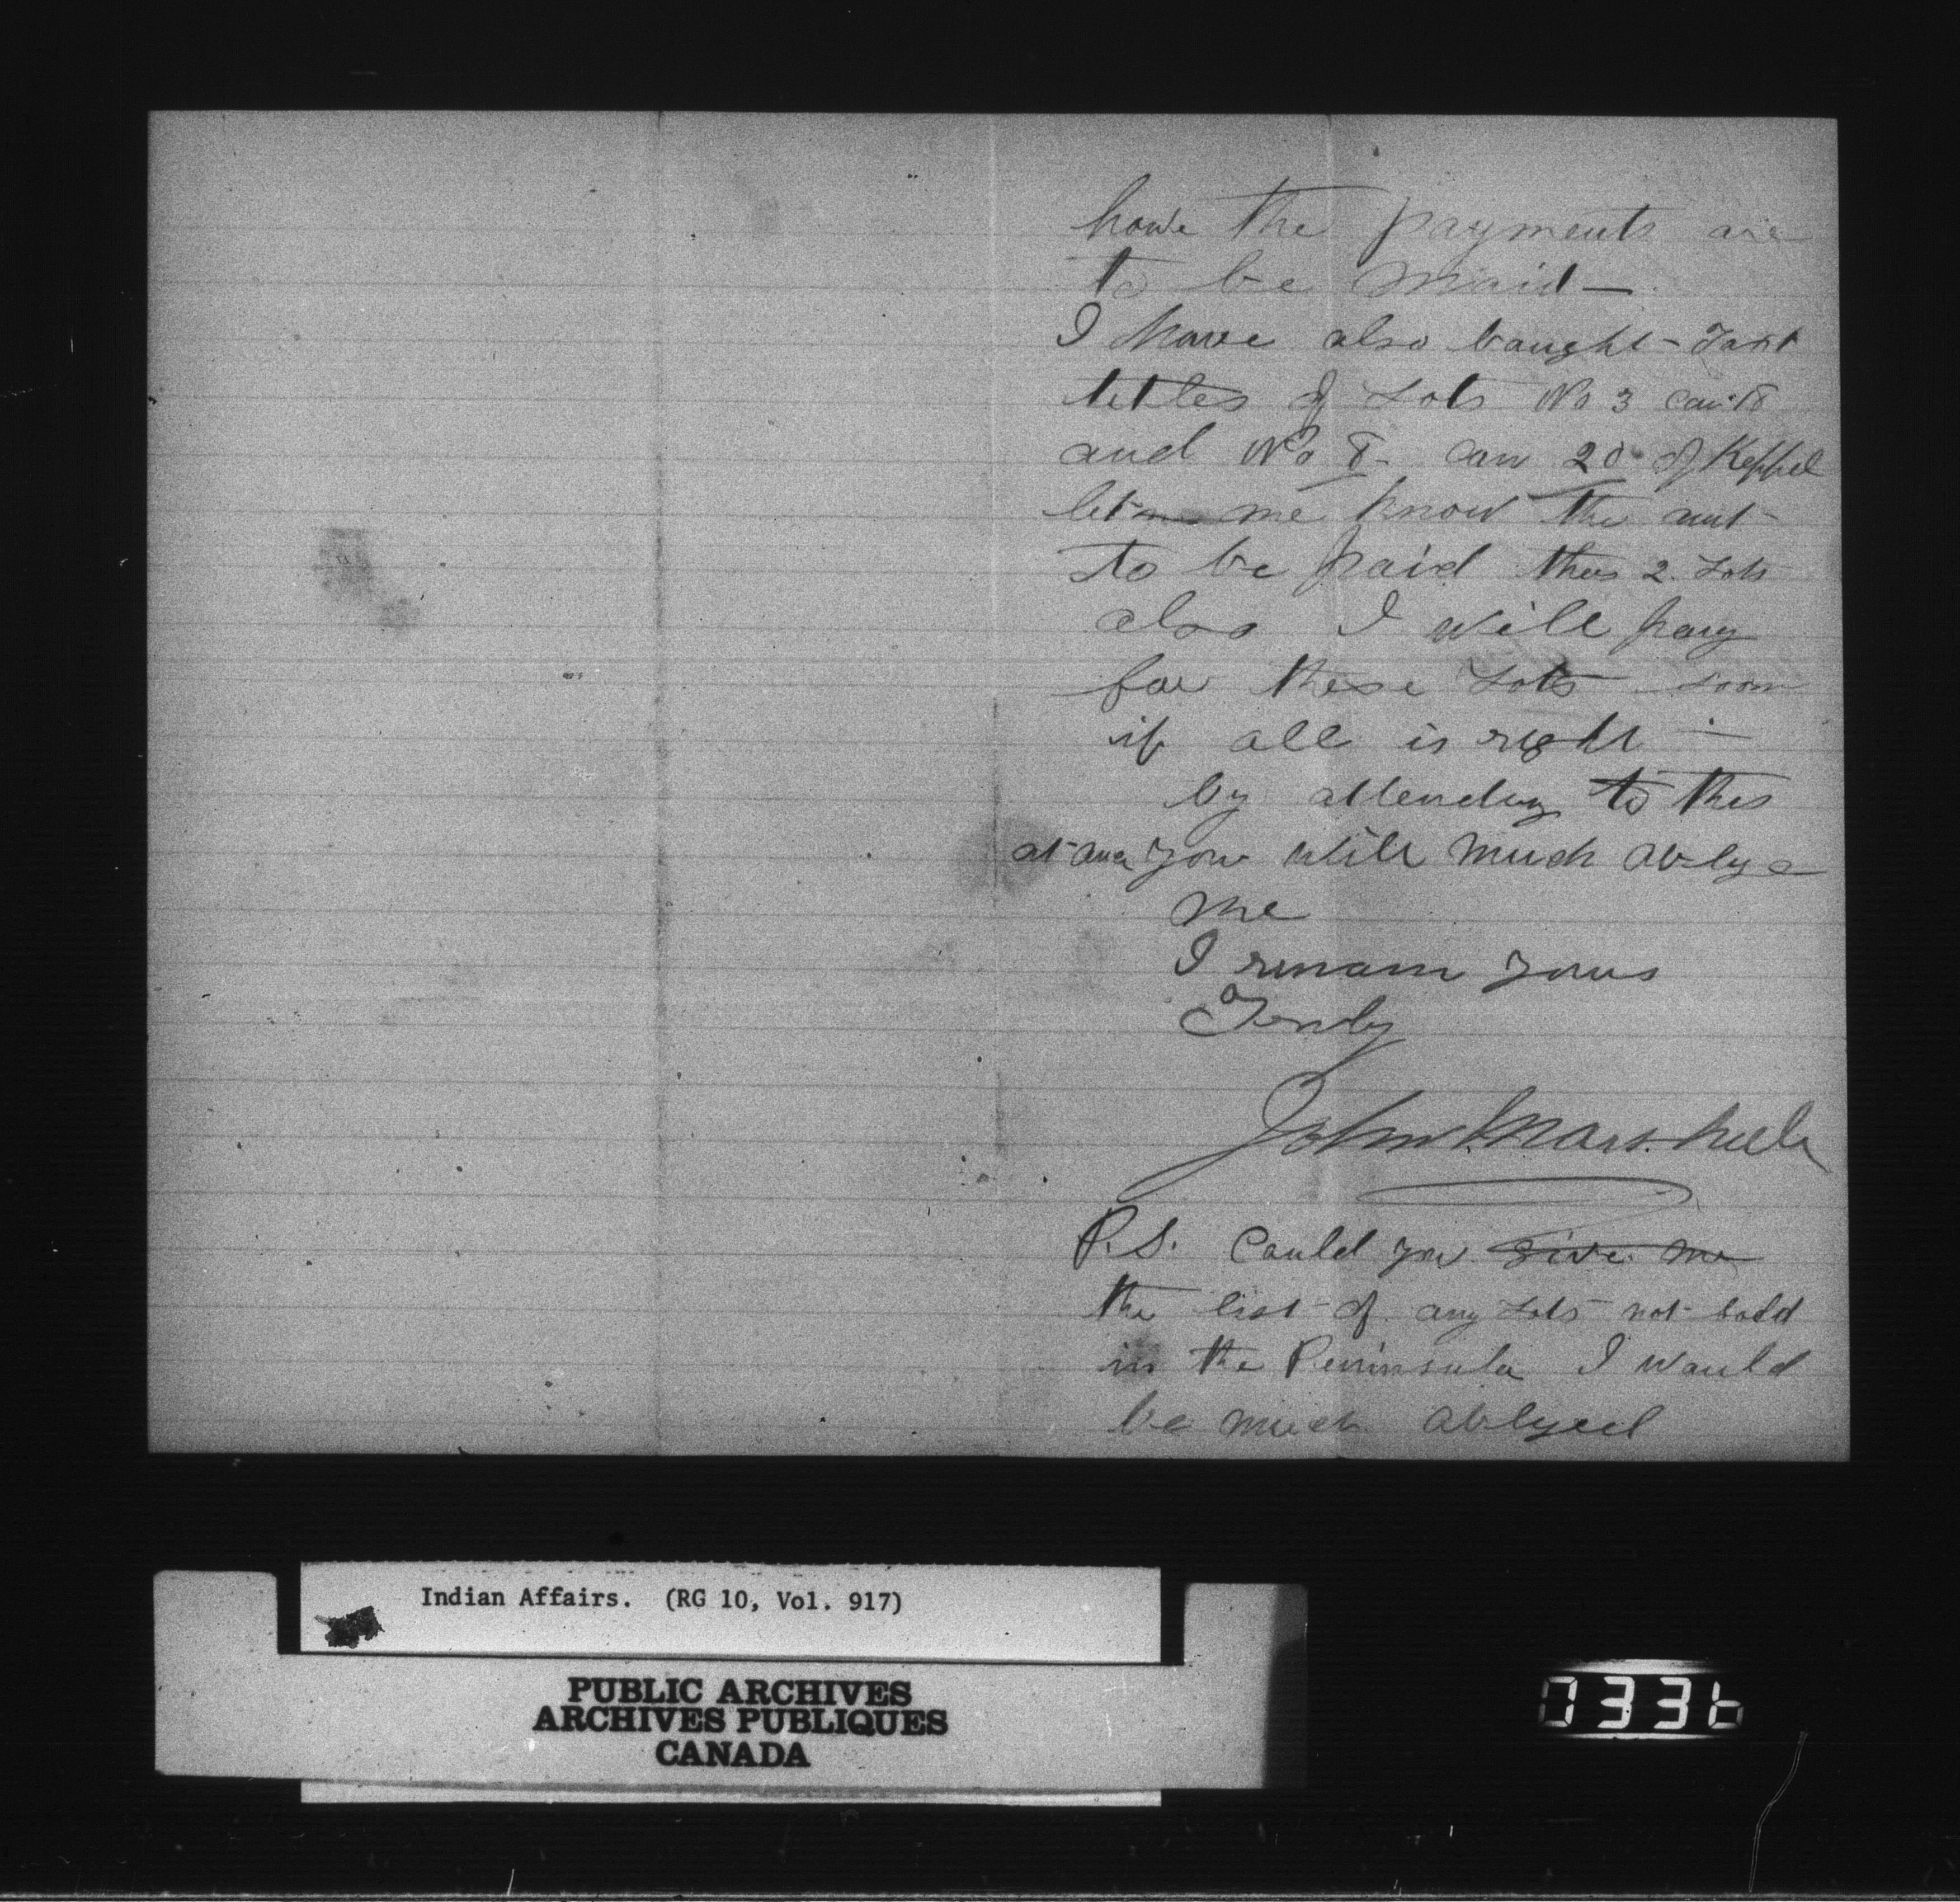 how the payments are
to be maid —
I have also bought Tax
tettles of Lots No 3 Con 18
and No 8 - Con 20 of Keppel
let me know the amt
to be paid thes 2 Lots
also I will pay
for these Lots soon
if all is right —
by attending to this
at once you will much oblye
me
I remain yours
Truly
John Marshall
P.S. Could you give me
the list of any Lots not sold
in the Peninsula I would
be much oblyed
Indian Affairs. (RG 10, Vol. 917)
PUBLIC ARCHIVES
ARCHIVES PUBLIQUES
CANADA
0336